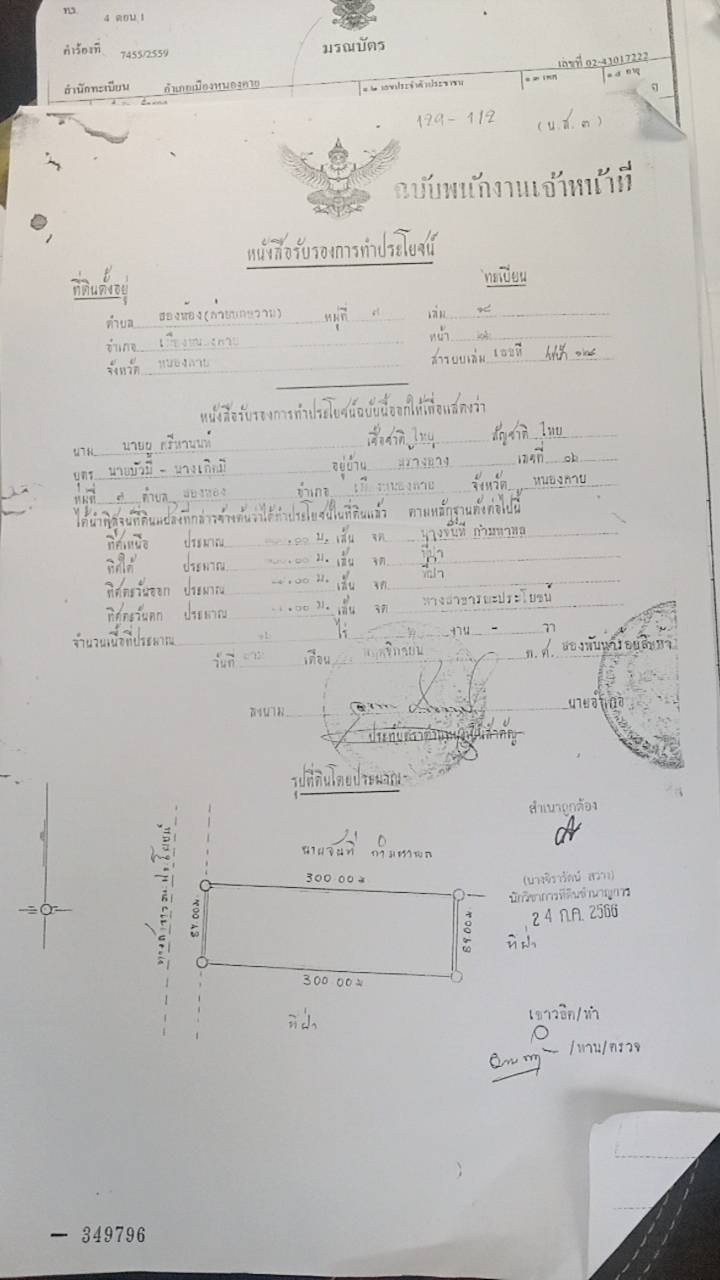 ทร. 4 ตอน 1
คำร้องที่ 7455/2559
มรณบัตร
เลขที่ 02-43017222
สำนักทะเบียน อำเภอเมืองหนองคาย
๑.๒ เลขประจำตัวประชาชน
๑.๓ เพศ
๑.๔ อายุ
129-112
(น.ส. ๓)
ฉบับพนักงานเจ้าหน้าที่
หนังสือรับรองการทำประโยชน์
ที่ดินตั้งอยู่
ทะเบียน
ตำบล สองห้อง หมู่ที่ ๗ เล่ม ๑๘
อำเภอ เมืองหนองคาย หน้า
จังหวัด หนองคาย สารบบเล่ม เลขที่ หน้า ๑๒๘
หนังสือรับรองการทำประโยชน์ฉบับนี้ออกให้เพื่อแสดงว่า
นาม นาย ศรีหานนท์ เชื้อชาติ ไทย สัญชาติ ไทย
บุตร นายบัวมี - นาง อยู่บ้าน เลขที่ ๑๖
หมู่ที่ ๗ ตำบล สองห้อง อำเภอ เมืองหนองคาย จังหวัด หนองคาย
ได้นำพิสูจน์ที่ดินแปลงที่กล่าวข้างต้นว่าได้ทำประโยชน์ในที่ดินแล้ว ตามหลักฐานดังต่อไปนี้
ทิศเหนือ ประมาณ ๓๐๐.๐๐ ม. เส้น จด
ทิศใต้ ประมาณ ๓๐๐.๐๐ ม. เส้น จด ที่ป่า
ทิศตะวันออก ประมาณ ม. เส้น จด ที่ป่า
ทิศตะวันตก ประมาณ ม. เส้น จด ทางสาธารณะประโยชน์
จำนวนเนื้อที่ประมาณ ๑๖ ไร่ งาน - วา
วันที่ เดือน พฤศจิกายน พ.ศ. สองพันห้าร้อยสิบห้า
ลงนาม นายอำเภอ
ประทับตราตำแหน่งเป็นสำคัญ
รูปที่ดินโดยประมาณ
สำเนาถูกต้อง
(นางจิรารัตน์ สวาง)
นักวิชาการที่ดินชำนาญการ
24 ก.ค. 2566
300.00 ม
84.00 ม
84.00 ม
300.00 ม
ทางสาธารณประโยชน์
ที่ป่า
ที่ป่า
/ทำ
/ทาน/ตรวจ
— 349796